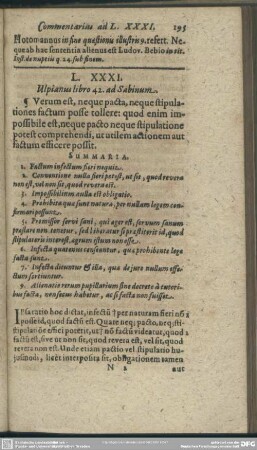 Commentarius ad L. XXXI. 195
Hotomannus in fine quæstionū illustriū 9. refert. Ne-
que ab hac sententia alienus est Ludov. Bebio in tit.
Inst. de nuptiis q. 24. sub finem.
L. XXXI.
Ulpianus libro 42. ad Sabinum.
¶ Verum est, neque pacta, neque stipula-
tiones factum posse tollere: quod enim im-
possibile est, neque pacto neque stipulatione
potest comprehendi, ut utilem actionem aut
factum efficere possit.
SUMMARIA.
1. Factum infectum fieri nequit.
2. Conventione nulla fieri potest, ut sit, quod revera
non est, vel non sit, quod revera est.
3. Impossibilium nulla est obligatio.
4. Prohibita quæ sunt natura, per nullam legem con-
firmari possunt.
5. Promissor servi sani, qui æger est, servum sanum
præstare non tenetur, sed liberatur si præstiterit id, quod
stipulatoris interest, ægrum istum non esse.
6. Infecta quatenus censeantur, quæ prohibente lege
facta sunt.
7. Infecta dicuntur & illa, quæ de jure nullum effe-
ctum sortiuntur.
9. Alienatio rerum pupillarium sine decreto à tutori-
bus facta, non secus habetur, ac si facta non fuisset.
IPsa ratio hoc dictat, infectū 1 per naturam fieri nō 2
posse id, quod factū est. Quare neq; pacto, neq; sti-
pulatiōe effici poterit, ut 2 nō factū videatur, quod
factū est, sive ut non sit, quod revera est, vel sit, quod
revera non est. Unde etiam pactio vel stipulatio hu-
jusmodi, licet interposita sit, obligationem tamen
N 2 aut